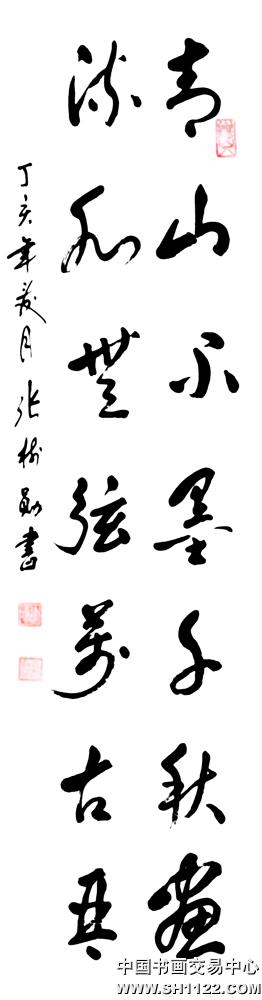 青山不墨千秋畫
流水無弦萬古琴
丁亥年月張樹勛書
中国书画交易中心
www.SH1122.com